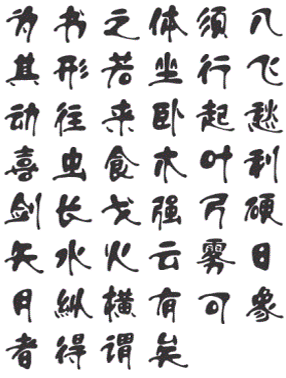 为书之体须入
其形若坐行飞
动往来卧起愁
喜虫食木叶利
剑长戈强弓硬
矢水火云雾日
月纵横有可象
者得谓矣